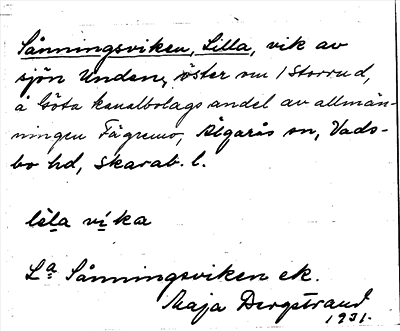 Sånningsviken, Lilla, vik av
sjön Unden, öster om 1 Storrud,
å Göta kanalbolags andel av allmän-
ningen Fägremo, Älgarås sn, Vads-
bo hd, Skarab. l.
lẹla víka
La Sånningsviken ek.
Maja Bergstrand
1931.